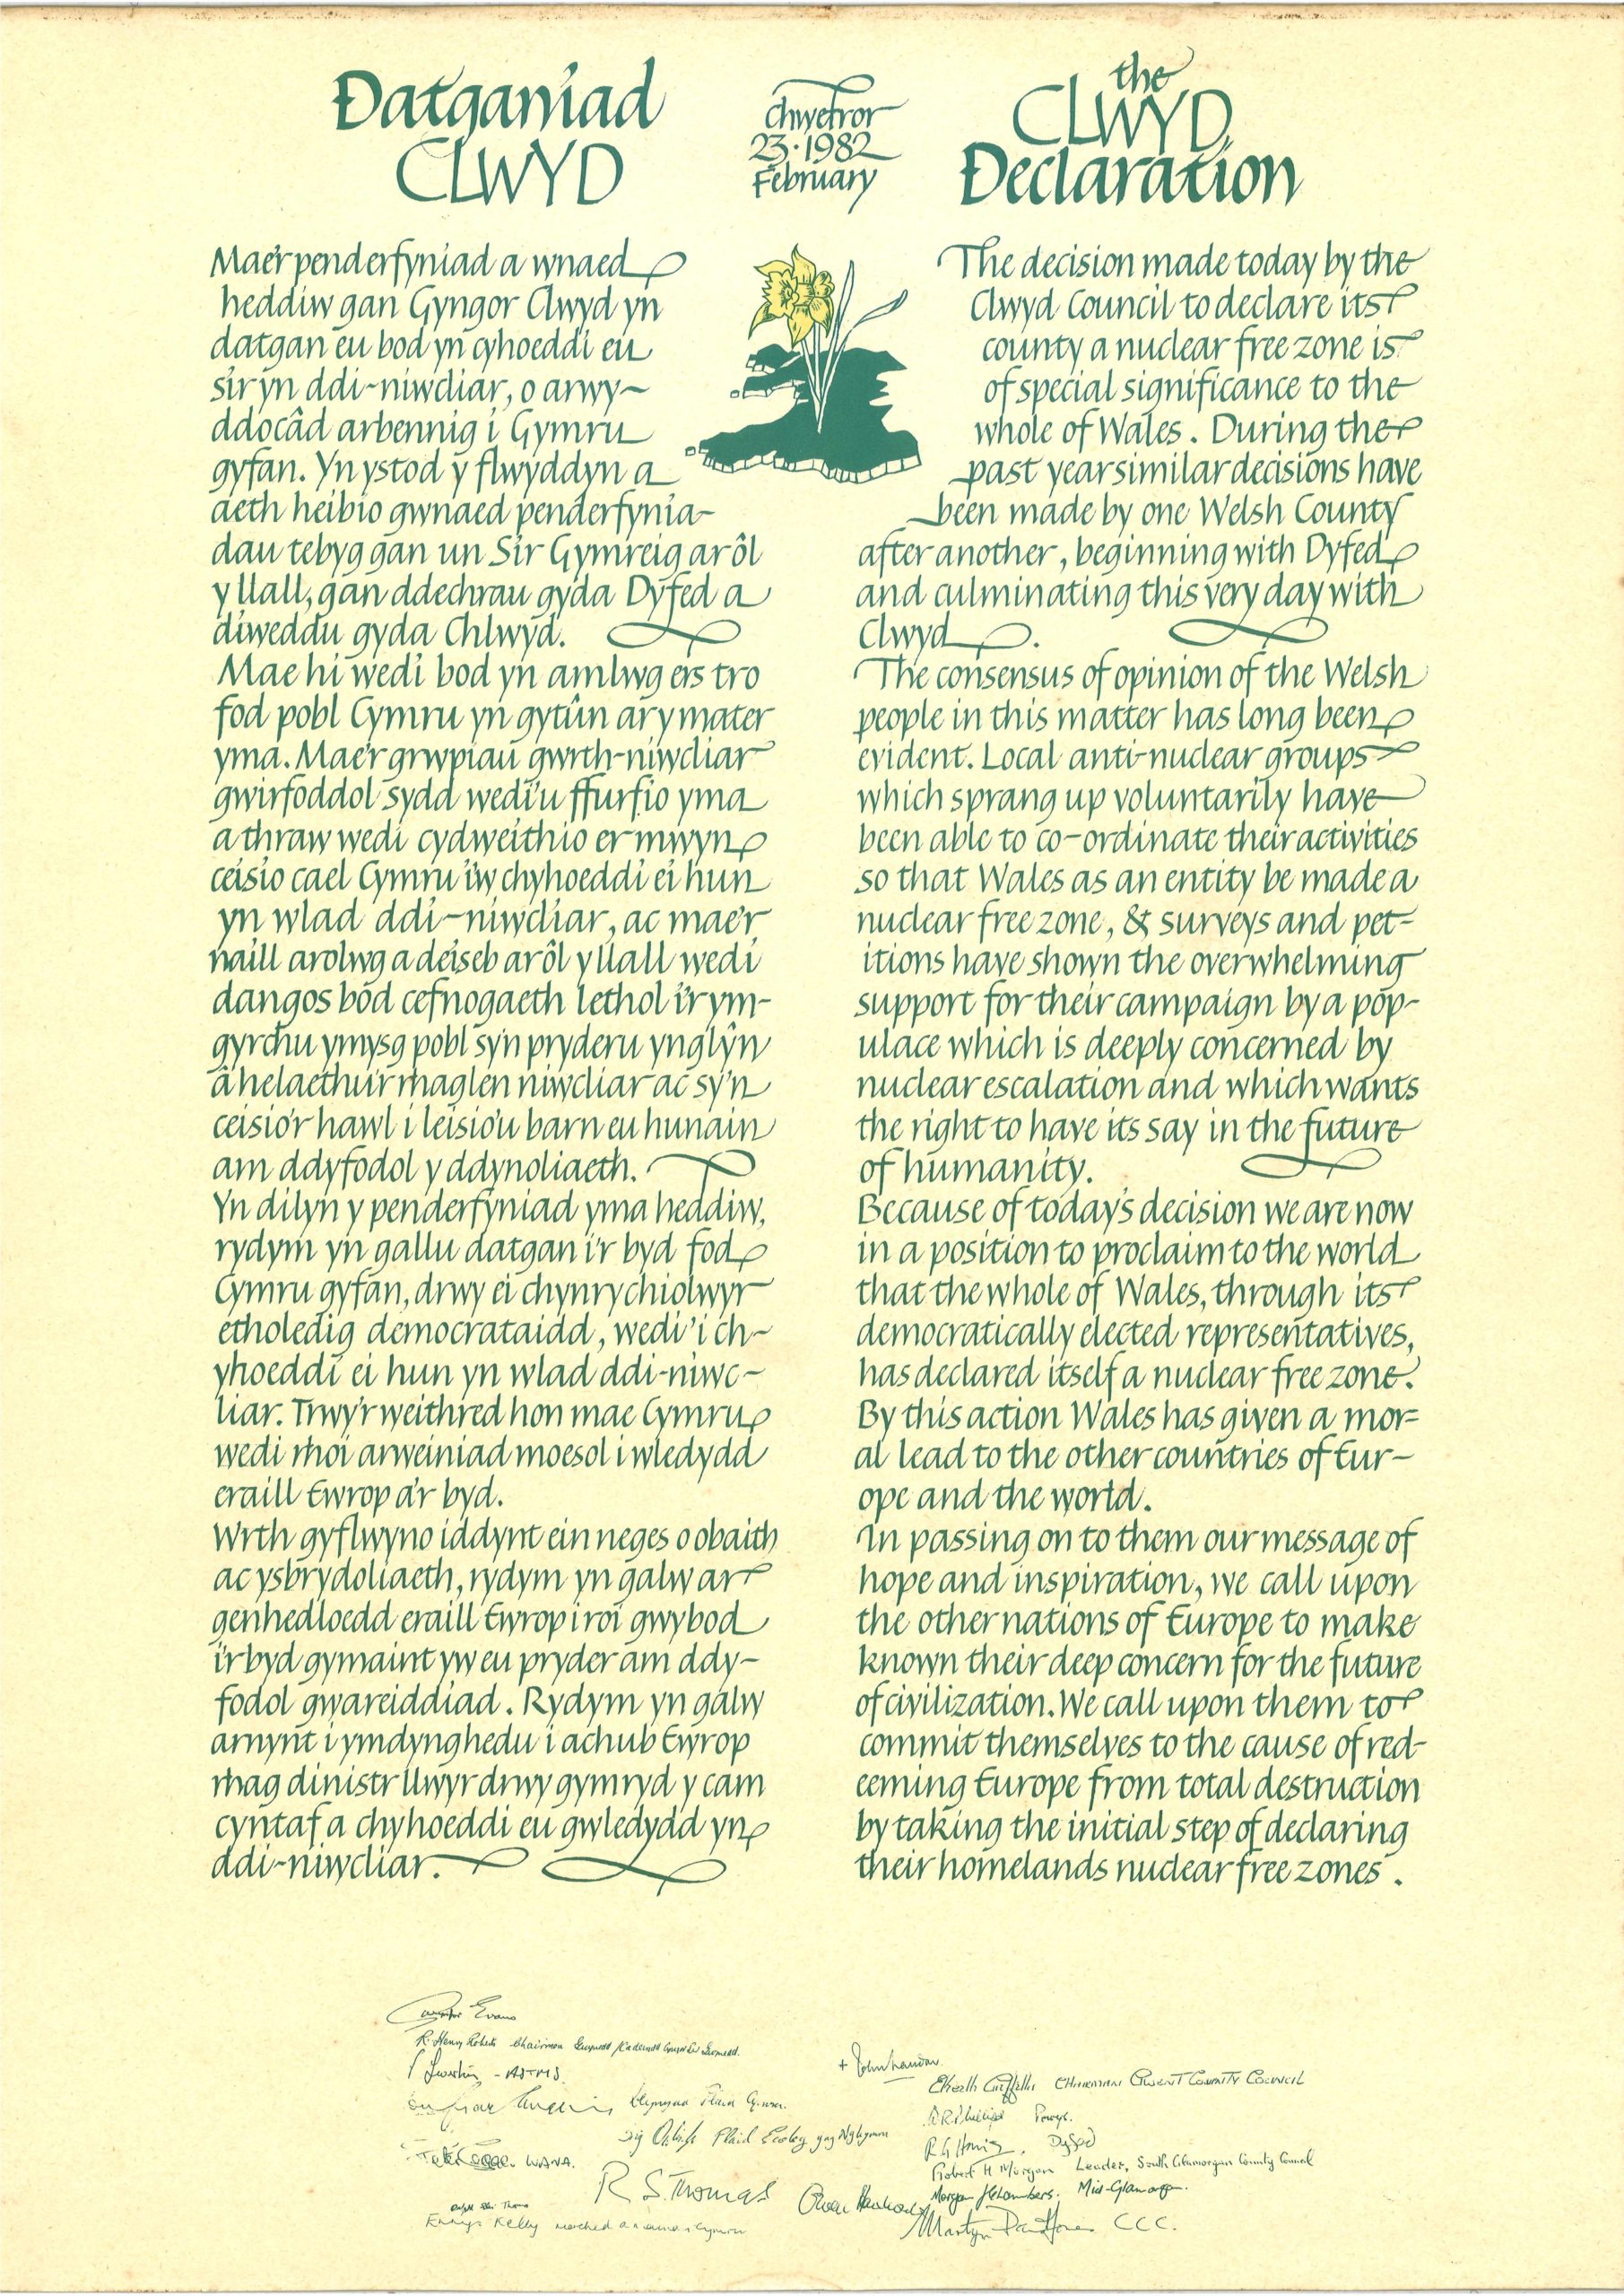 Datganiad
CLWYD
Chwefror
23·1982
February
the
CLWYD
Declaration
Mae'r penderfyniad a wnaed
heddiw gan Gyngor Clwyd yn
datgan eu bod yn cyhoeddi eu
sir yn ddi-niwcliar, o arwy-
ddocâd arbennig i Gymru
gyfan. Yn ystod y flwyddyn a
aeth heibio gwnaed penderfynia-
dau tebyg gan un Sir Gymreig ar ôl
y llall, gan ddechrau gyda Dyfed a
diweddu gyda Chlwyd.
Mae hi wedi bod yn amlwg ers tro
fod pobl Cymru yn gytûn ar y mater
yma. Mae'r grwpiau gwrth-niwcliar
gwirfoddol sydd wedi'u ffurfio yma
a thraw wedi cydweithio er mwyn
ceisio cael Cymru i'w chyhoeddi ei hun
yn wlad ddi-niwcliar, ac mae'r
naill arolwg a deiseb ar ôl y llall wedi
dangos bod cefnogaeth lethol i'r ym-
gyrchu ymysg pobl sy'n pryderu ynglŷn
â helaethu'r rhaglen niwcliar ac sy'n
ceisio'r hawl i leisio'u barn eu hunain
am ddyfodol y ddynoliaeth.
Yn dilyn y penderfyniad yma heddiw,
rydym yn gallu datgan i'r byd fod
Cymru gyfan, drwy ei chynrychiolwyr
etholedig democrataidd, wedi'i ch-
yhoeddi ei hun yn wlad ddi-niwc-
liar. Trwy'r weithred hon mae Cymru
wedi rhoi arweiniad moesol i wledydd
eraill Ewrop a'r byd.
Wrth gyflwyno iddynt ein neges o obaith
ac ysbrydoliaeth, rydym yn galw ar
genhedloedd eraill Ewrop i roi gwybod
i'r byd gymaint yw eu pryder am ddy-
fodol gwareiddiad. Rydym yn galw
arnynt i ymdynghedu i achub Ewrop
rhag dinistr llwyr drwy gymryd y cam
cyntaf a chyhoeddi eu gwledydd yn
ddi-niwcliar.
The decision made today by the
Clwyd Council to declare its
county a nuclear free zone is
of special significance to the
whole of Wales. During the
past year similar decisions have
been made by one Welsh County
after another, beginning with Dyfed
and culminating this very day with
Clwyd.
The consensus of opinion of the Welsh
people in this matter has long been
evident. Local anti-nuclear groups
which sprang up voluntarily have
been able to co-ordinate their activities
so that Wales as an entity be made a
nuclear free zone, & surveys and pet-
itions have shown the overwhelming
support for their campaign by a pop-
ulace which is deeply concerned by
nuclear escalation and which wants
the right to have its say in the future
of humanity.
Because of today's decision we are now
in a position to proclaim to the world
that the whole of Wales, through its
democratically elected representatives,
has declared itself a nuclear free zone.
By this action Wales has given a mor-
al lead to the other countries of Eur-
ope and the world.
In passing on to them our message of
hope and inspiration, we call upon
the other nations of Europe to make
known their deep concern for the future
of civilization. We call upon them to
commit themselves to the cause of red-
eeming Europe from total destruction
by taking the initial step of declaring
their homelands nuclear free zones.
Evans
R. Henry Roberts Chairman
- ASTMS
Plaid
Plaid Ecoleg yng Nghymru
WANA.
R S. Thomas
Kelly
Griffiths CHAIRMAN GWENT COUNTY COUNCIL
Powys.
Dyfed
Robert H Morgan Leader, South Glamorgan County Council
Morgan Chambers. Mid-Glamorgan.
CCC.